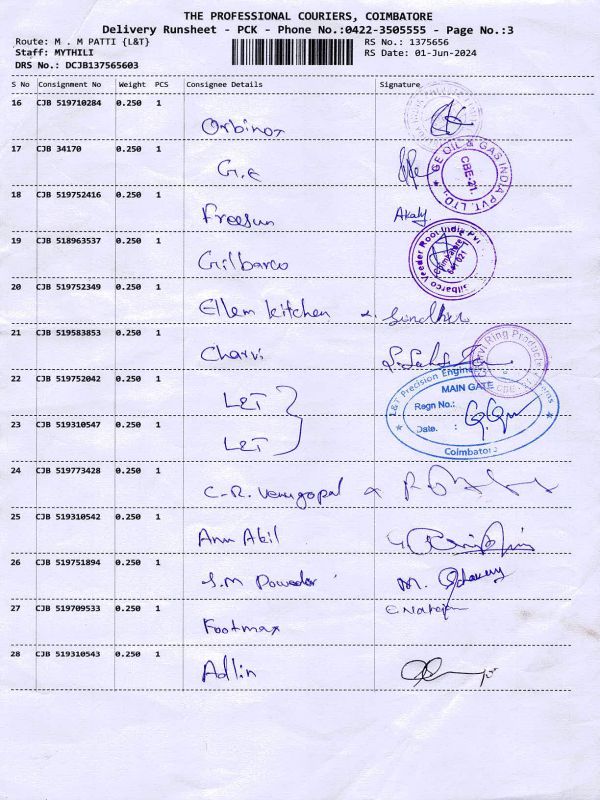 THE PROFESSIONAL COURIERS, COIMBATORE
Delivery Runsheet - PCK - Phone No.:0422-3505555 - Page No.:3
Route: M . M PATTI {L&T} RS No.: 1375656
Staff: MYTHILI RS Date: 01-Jun-2024
DRS No.: DCJB137565603
S No Consignment No Weight PCS Consignee Details Signature
16 CJB 519710284 0.250 1
Orbinox
17 CJB 34170 0.250 1
G.E
GE OIL & GAS INDIA PVT. LTD. CBE-21.
18 CJB 519752416 0.250 1
Freesun
19 CJB 518963537 0.250 1
Gilbarco
Gilbarco Veeder Root India Pvt
Coimbatore
641 021
20 CJB 519752349 0.250 1
Ellem kitchen
21 CJB 519583853 0.250 1
Charvi
22 CJB 519752042 0.250 1
L&T
L&T Precision Engineering
MAIN GATE
Regn No.:
23 CJB 519310547 0.250 1
L&T
Date. :
Coimbatore
24 CJB 519773428 0.250 1
C.R. Venugopal
25 CJB 519310542 0.250 1
26 CJB 519751894 0.250 1
S.M Powder
27 CJB 519709533 0.250 1
Footmax
28 CJB 519310543 0.250 1
Adlin